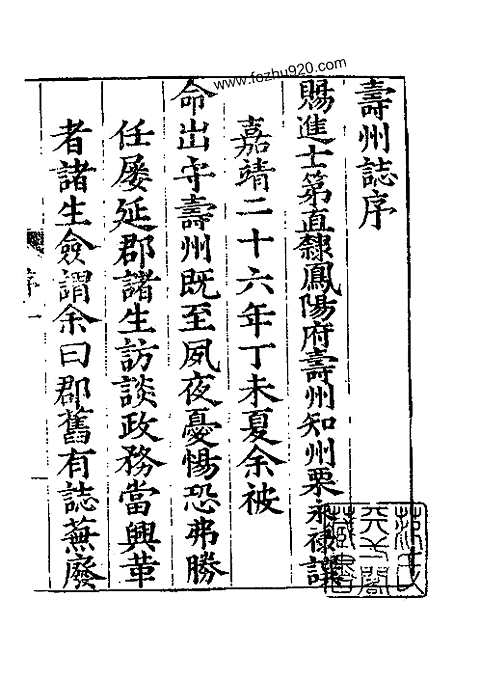 www.fozhu920.com
壽州誌序
賜進士第直隸鳳陽府壽州知州栗永祿譔
嘉靖二十六年丁未夏余被
命出守壽州既至夙夜憂惕恐弗勝
任屡延郡諸生訪談政務當興革
者諸生僉謂余曰郡舊有誌蕪廢
序 一
范氏天一閣藏書